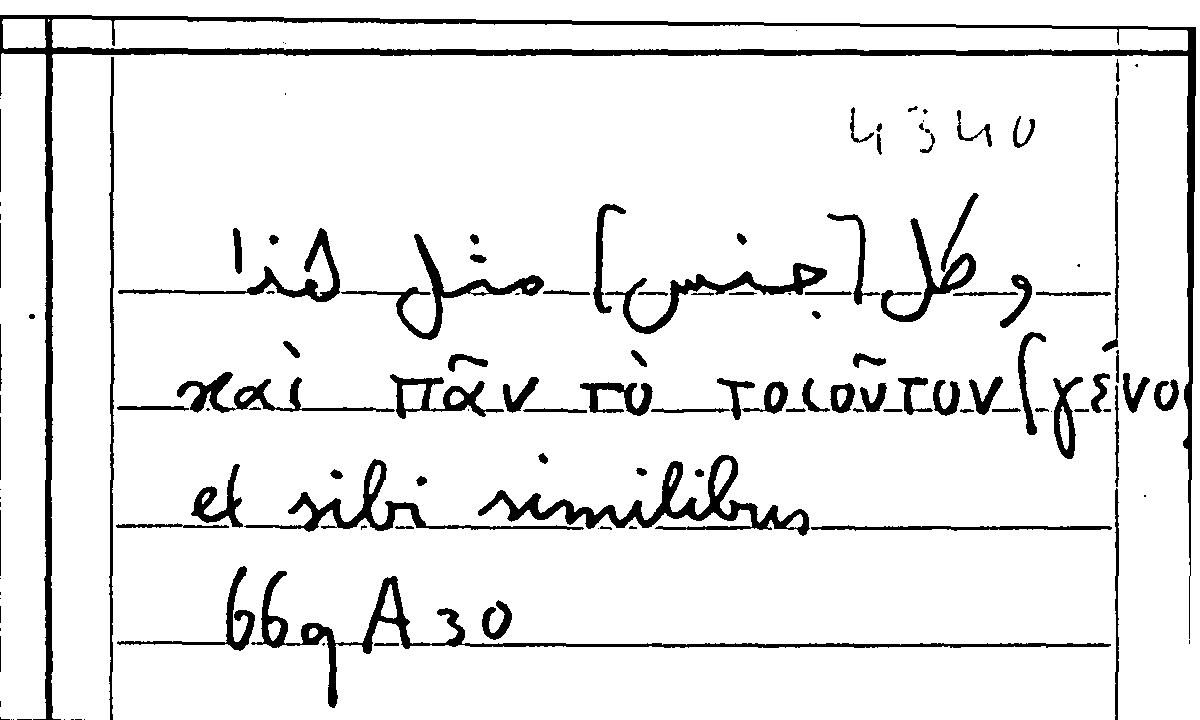 4340
وكل [جنس] مثل هذا
καὶ πᾶν τὸ τοιοῦτον [γένος
et sibi similibus
669 A 30